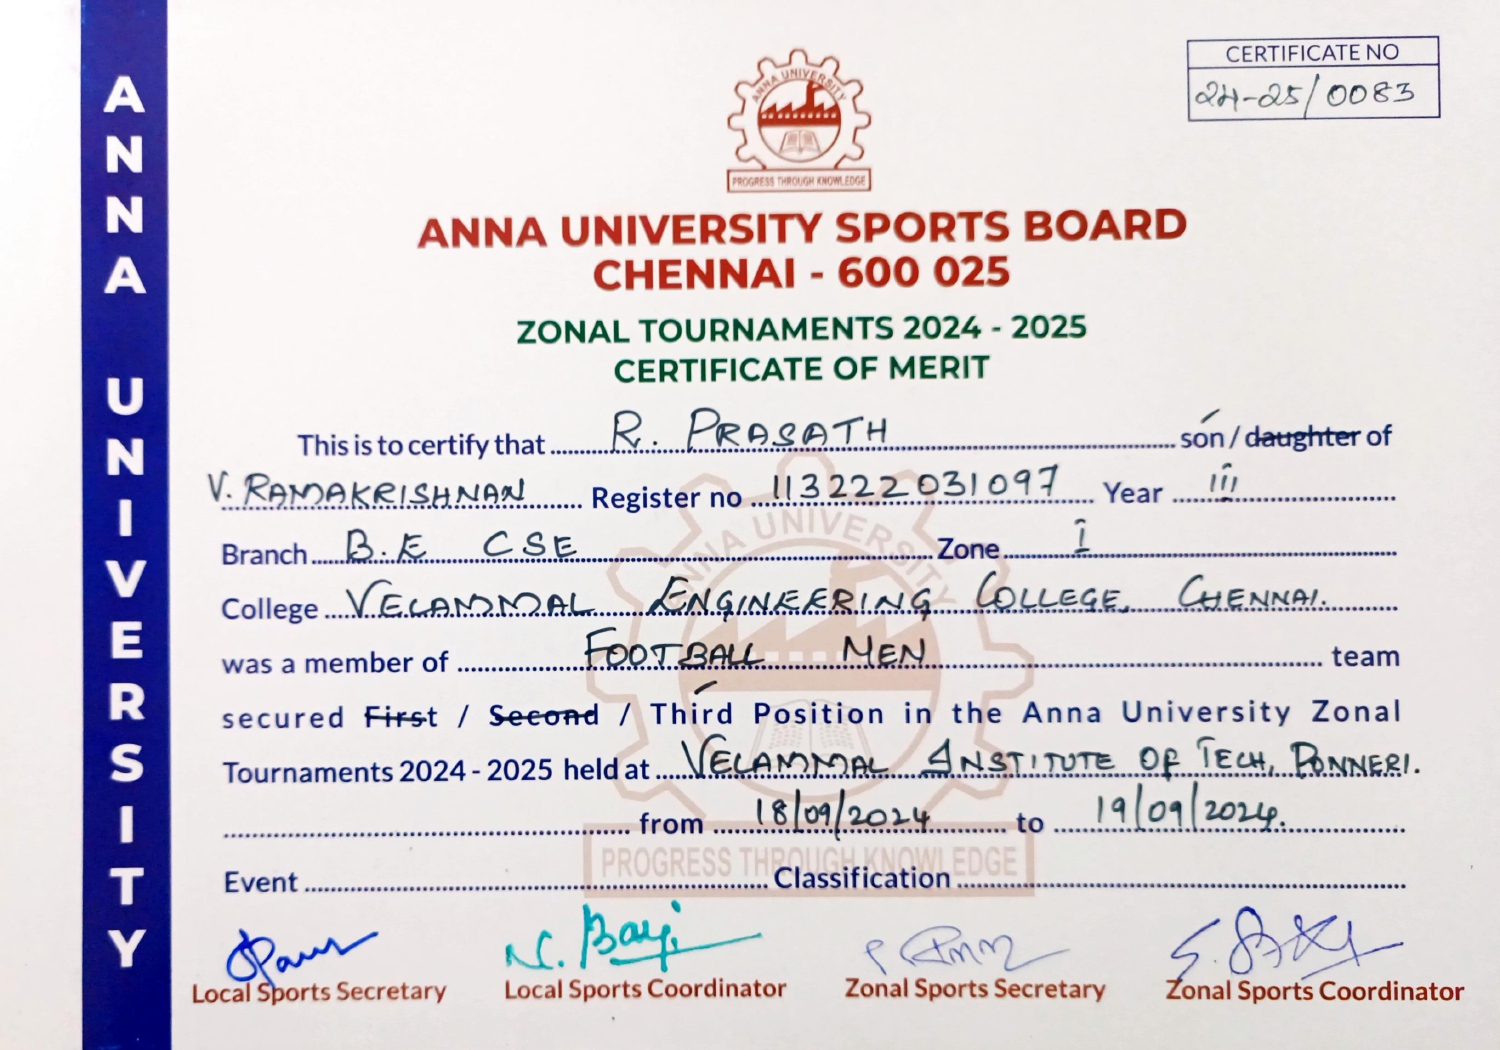 ANNA UNIVERSITY
CERTIFICATE NO
24-25/0083
ANNA UNIVERSITY
PROGRESS THROUGH KNOWLEDGE
ANNA UNIVERSITY SPORTS BOARD
CHENNAI - 600 025
ZONAL TOURNAMENTS 2024 - 2025
CERTIFICATE OF MERIT
This is to certify that R. PRASATH son / daughter of
V. RAMAKRISHNAN Register no 113222031097 Year iii
Branch B.E CSE Zone I
College VELAMMAL ENGINEERING COLLEGE, CHENNAI.
was a member of FOOTBALL MEN team
secured First / Second / Third Position in the Anna University Zonal
Tournaments 2024 - 2025 held at VELAMMAL INSTITUTE OF TECH, PONNERI.
from 18/09/2024 to 19/09/2024.
ANNA UNIVERSITY
PROGRESS THROUGH KNOWLEDGE
Event Classification
N. Bayi
Local Sports Secretary Local Sports Coordinator Zonal Sports Secretary Zonal Sports Coordinator